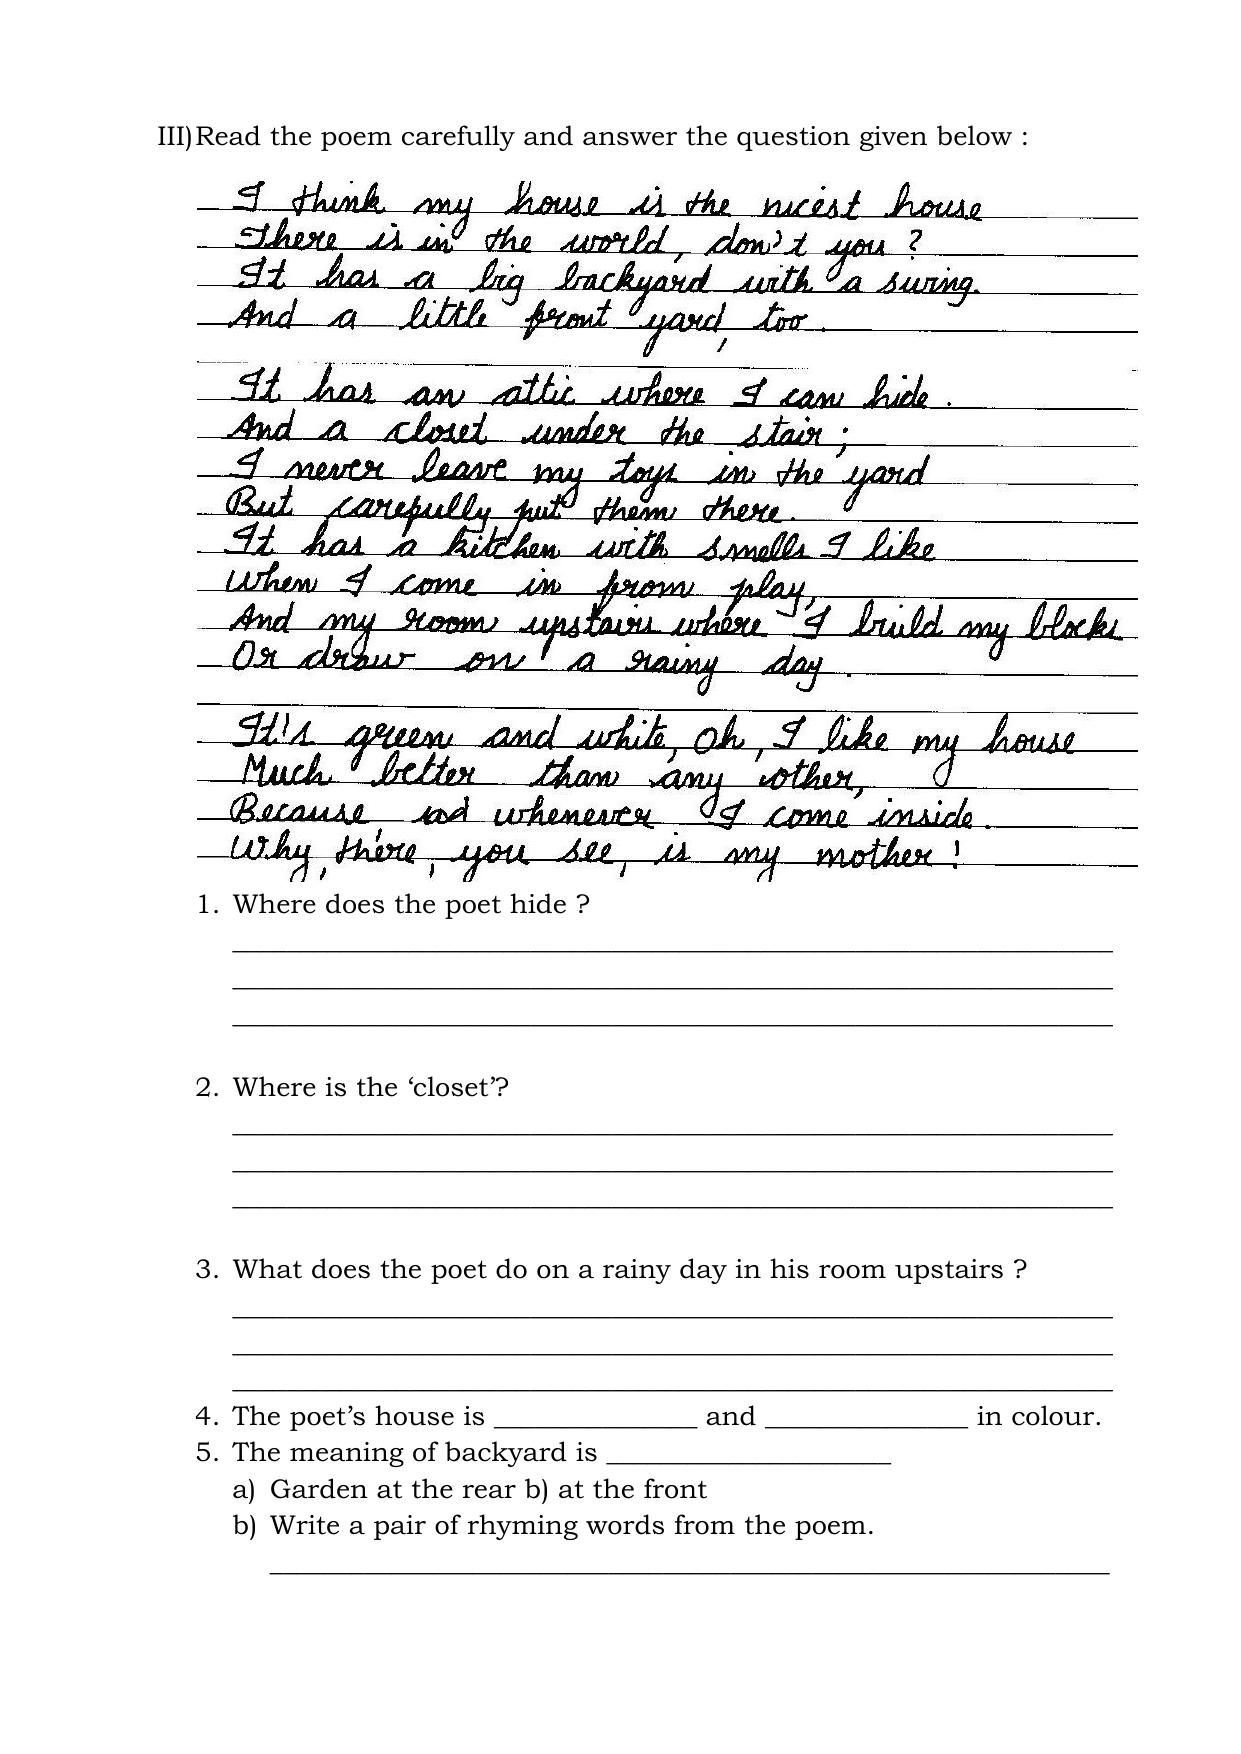 III) Read the poem carefully and answer the question given below :
I think my house is the nicest house
There is in the world, don't you ?
It has a big backyard with a swing.
And a little front yard, too.
It has an attic where I can hide.
And a closet under the stair;
I never leave my toys in the yard
But carefully put them there.
It has a kitchen with smells I like
When I come in from play,
And my room upstairs where I build my blocks
Or draw on a rainy day.
It's green and white, Oh, I like my house
Much better than any other,
Because whenever I come inside.
Why, there, you see, is my mother !
1. Where does the poet hide ?
2. Where is the ‘closet’?
3. What does the poet do on a rainy day in his room upstairs ?
4. The poet’s house is _______________ and _______________ in colour.
5. The meaning of backyard is _____________________
a) Garden at the rear b) at the front
b) Write a pair of rhyming words from the poem.